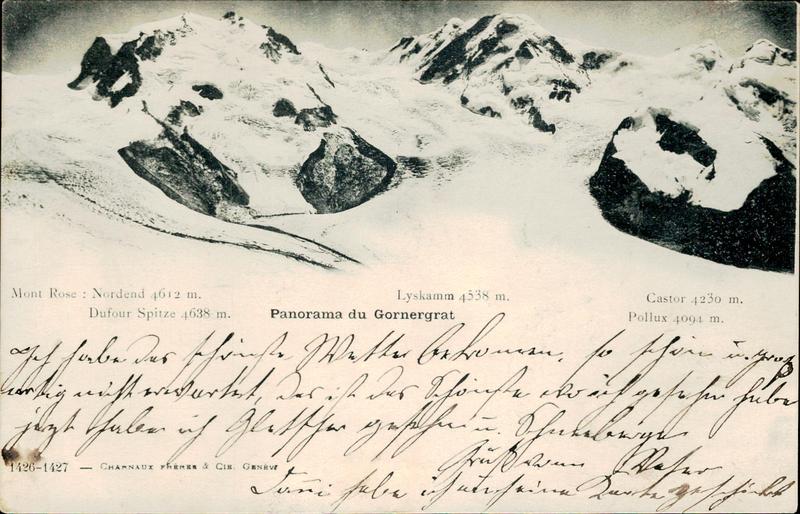 Mont Rose : Nordend 4612 m.
Dufour Spitze 4638 m.
Lyskamm 4538 m.
Castor 4230 m.
Pollux 4094 m.
Panorama du Gornergrat
Ich habe das schönste Wetter bekommen, so schön u. groß
artig nicht erwartet, das ist das Schönste wo ich gesehen habe
jezt habe ich Gletscher gesehen u. Schneeberge
Gruß vom
1426-1427 — CHARNAUX FRÈRES & CIE, GENÈVE
habe ich eine Karte geschickt